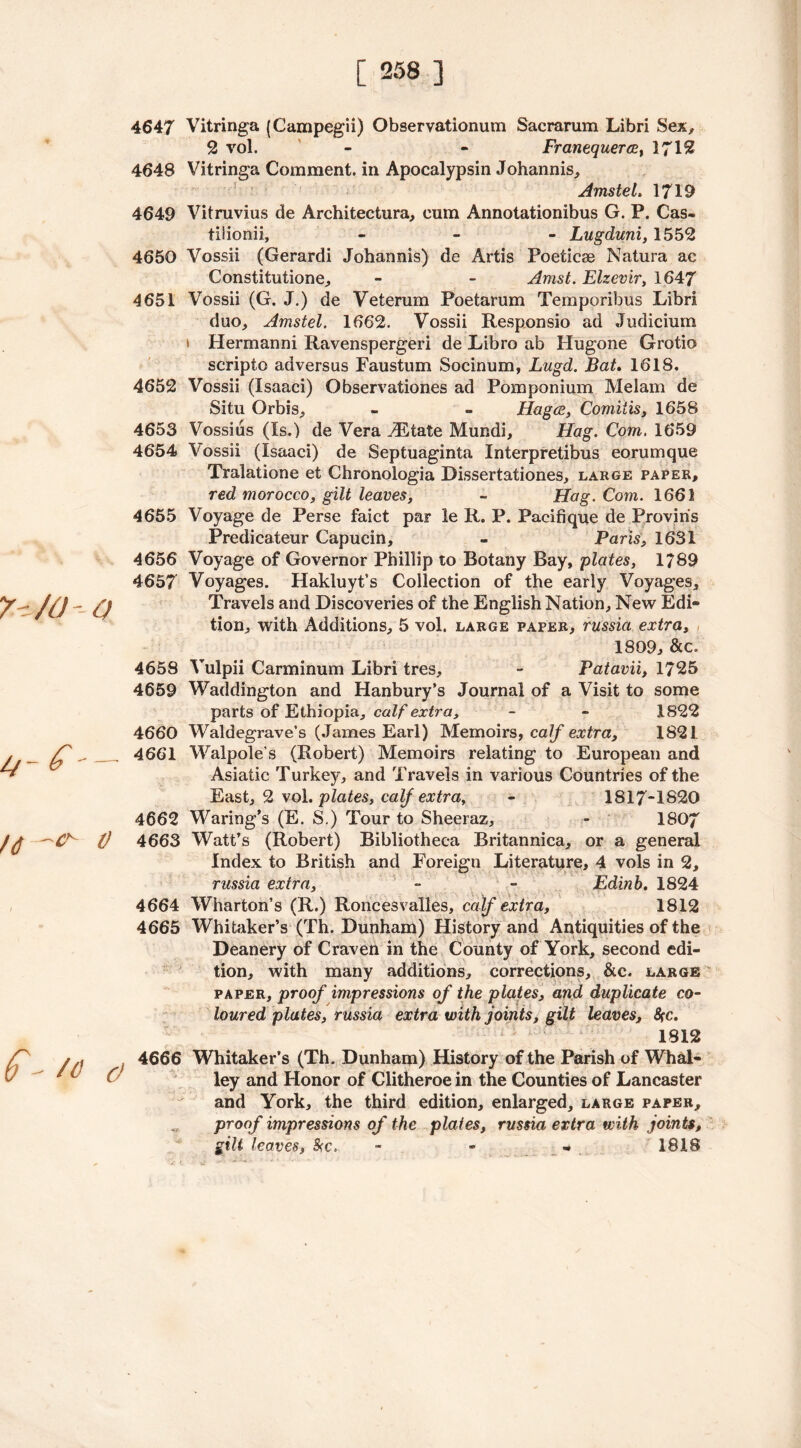 [ 258 ]
4647 Vitringa (Campegii) Observationum Sacrarum Libri Sex,
2 vol. - - Franequeræ, 1712
4648 Vitringa Comment. in Apocalypsin Johannis,
Amstel. 1719
4649 Vitruvius de Architectura, cum Annotationibus G. P. Cas-
tilionii, - - - Lugduni, 1552
4650 Vossii (Gerardi Johannis) de Artis Poeticæ Natura ac
Constitutione, - - Amst. Elzevir, 1647
4651 Vossii (G. J.) de Veterum Poetarum Temporibus Libri
duo, Amstel. 1662. Vossii Responsio ad Judicium
Hermanni Ravenspergeri de Libro ab Hugone Grotio
scripto adversus Faustum Socinum, Lugd. Bat. 1618.
4652 Vossii (Isaaci) Observationes ad Pomponium Melam de
Situ Orbis, - - Hagæ, Comitis, 1658
4653 Vossius (Is.) de Vera Ætate Mundi, Hag. Com. 1659
4654 Vossii (Isaaci) de Septuaginta Interpretibus eorumque
Tralatione et Chronologia Dissertationes, LARGE PAPER,
red morocco, gilt leaves, - Hag. Com. 1661
4655 Voyage de Perse faict par le R. P. Pacifique de Provins
Predicateur Capucin, - Paris, 1631
4656 Voyage of Governor Phillip to Botany Bay, plates, 1789
7-10-0 4657 Voyages. Hakluyt's Collection of the early Voyages,
Travels and Discoveries of the English Nation, New Edi-
tion, with Additions, 5 vol. LARGE PAPER, russia extra,
1809, &c.
4658 Vulpii Carminum Libri tres, - Patavii, 1725
4659 Waddington and Hanbury's Journal of a Visit to some
parts of Ethiopia, calf extra, - - 1822
4660 Waldegrave's (James Earl) Memoirs, calf extra, 1821
4-6-— 4661 Walpole's (Robert) Memoirs relating to European and
Asiatic Turkey, and Travels in various Countries of the
East, 2 vol. plates, calf extra, - 1817-1820
4662 Waring's (E. S.) Tour to Sheeraz, - 1807
4663 Watt's (Robert) Bibliotheca Britannica, or a general
Index to British and Foreign Literature, 4 vols in 2,
russia extra, - - Edinb. 1824
4664 Wharton's (R.) Roncesvalles, calf extra, 1812
4665 Whitaker's (Th. Dunham) History and Antiquities of the
Deanery of Craven in the County of York, second edi-
tion, with many additions, corrections, &c. LARGE
PAPER, proof impressions of the plates, and duplicate co-
loured plates, russia extra with joints, gilt leaves, &c.
1812
6-10 0 4666 Whitaker's (Th. Dunham) History of the Parish of Whal-
ley and Honor of Clitheroe in the Counties of Lancaster
and York, the third edition, enlarged, LARGE PAPER,
proof impressions of the plates, russia extra with joints,
gilt leaves, &c. - - - 1818